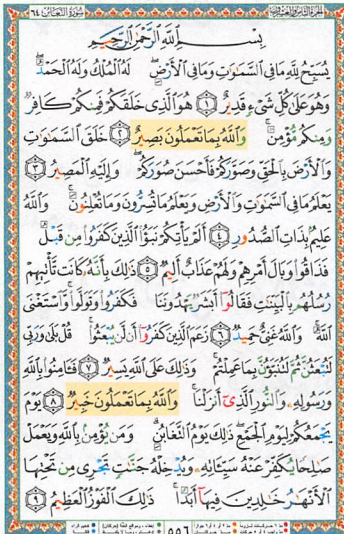 الجزء الثامن والعشرون سورة التغابن ٦٤
بِسْمِ اللَّهِ الرَّحْمَٰنِ الرَّحِيمِ
يُسَبِّحُ لِلَّهِ مَا فِي السَّمَٰوَٰتِ وَمَا فِي الْأَرْضِ ۖ لَهُ الْمُلْكُ وَلَهُ الْحَمْدُ ۖ
وَهُوَ عَلَىٰ كُلِّ شَيْءٍ قَدِيرٌ ١ هُوَ الَّذِي خَلَقَكُمْ فَمِنكُمْ كَافِرٌ
وَمِنكُم مُّؤْمِنٌ ۚ وَاللَّهُ بِمَا تَعْمَلُونَ بَصِيرٌ ٢ خَلَقَ السَّمَٰوَٰتِ
وَالْأَرْضَ بِالْحَقِّ وَصَوَّرَكُمْ فَأَحْسَنَ صُوَرَكُمْ ۖ وَإِلَيْهِ الْمَصِيرُ ٣
يَعْلَمُ مَا فِي السَّمَٰوَٰتِ وَالْأَرْضِ وَيَعْلَمُ مَا تُسِرُّونَ وَمَا تُعْلِنُونَ ۚ وَاللَّهُ
عَلِيمٌ بِذَاتِ الصُّدُورِ ٤ أَلَمْ يَأْتِكُمْ نَبَؤُا الَّذِينَ كَفَرُوا مِن قَبْلُ
فَذَاقُوا وَبَالَ أَمْرِهِمْ وَلَهُمْ عَذَابٌ أَلِيمٌ ٥ ذَٰلِكَ بِأَنَّهُ كَانَت تَّأْتِيهِمْ
رُسُلُهُم بِالْبَيِّنَٰتِ فَقَالُوا أَبَشَرٌ يَهْدُونَنَا فَكَفَرُوا وَتَوَلَّوا ۚ وَّاسْتَغْنَى
اللَّهُ ۚ وَاللَّهُ غَنِيٌّ حَمِيدٌ ٦ زَعَمَ الَّذِينَ كَفَرُوا أَن لَّن يُبْعَثُوا ۚ قُلْ بَلَىٰ وَرَبِّي
لَتُبْعَثُنَّ ثُمَّ لَتُنَبَّؤُنَّ بِمَا عَمِلْتُمْ ۚ وَذَٰلِكَ عَلَى اللَّهِ يَسِيرٌ ٧ فَآمِنُوا بِاللَّهِ
وَرَسُولِهِ وَالنُّورِ الَّذِي أَنزَلْنَا ۚ وَاللَّهُ بِمَا تَعْمَلُونَ خَبِيرٌ ٨ يَوْمَ
يَجْمَعُكُمْ لِيَوْمِ الْجَمْعِ ۖ ذَٰلِكَ يَوْمُ التَّغَابُنِ ۗ وَمَن يُؤْمِن بِاللَّهِ وَيَعْمَلْ
صَٰلِحًا يُكَفِّرْ عَنْهُ سَيِّئَاتِهِ وَيُدْخِلْهُ جَنَّٰتٍ تَجْرِي مِن تَحْتِهَا
الْأَنْهَٰرُ خَٰلِدِينَ فِيهَا أَبَدًا ۚ ذَٰلِكَ الْفَوْزُ الْعَظِيمُ ٩
٥٥٦